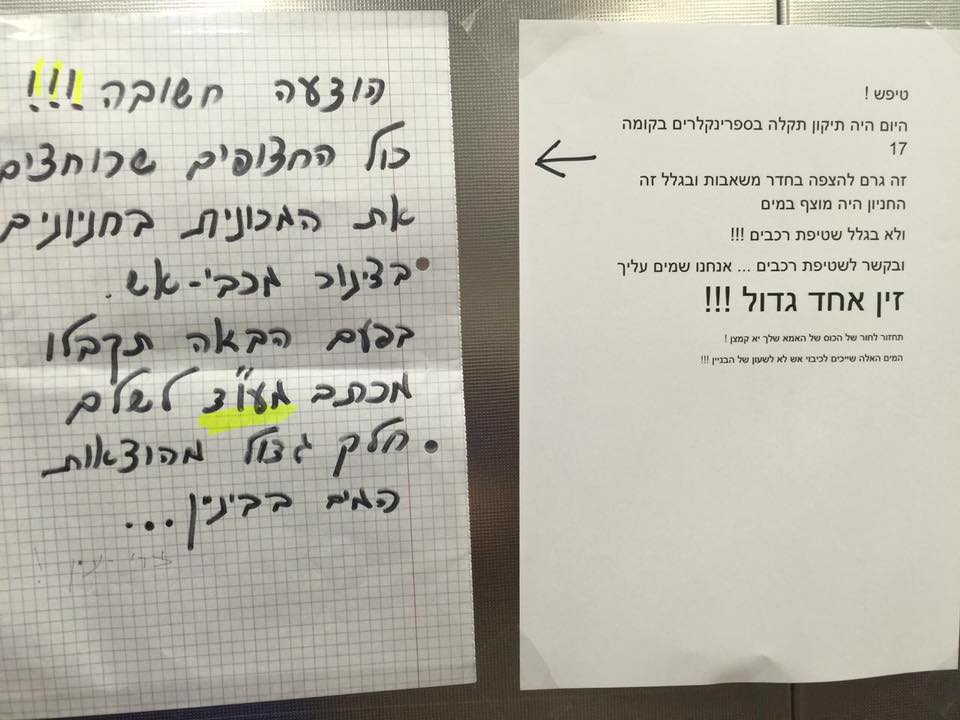 הודעה חשובה !!!
כול החצופים שרוחצים
את המכונית בחניונים
בצינור מכבי-אש.
בפעם הבאה תקבלו
מכתב מעו"ד לשלם
חלק גדול מהוצאות
המים בבניין...
טיפש !
היום היה תיקון תקלה בספרינקלרים בקומה
17
זה גרם להצפה בחדר משאבות ובגלל זה
החניון היה מוצף במים
ולא בגלל שטיפת רכבים !!!
ובקשר לשטיפת רכבים ... אנחנו שמים עליך
זין אחד גדול !!!
תחזור לחור של הכוס של האמא שלך יא קמצן !
המים האלה שייכים לכיבוי אש לא לשעון של הבניין !!!